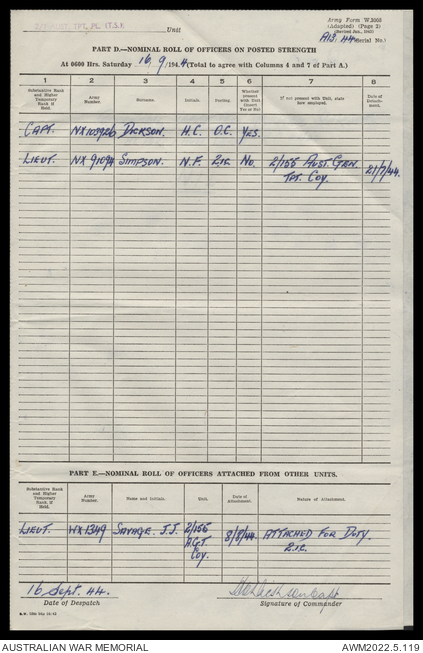 TPT. PL. (T.S.) Unit
Army Form W.3008
(Adapted) (Page 2)
(Revised Jan., 1943)
A/B. 44 (Serial No.)
PART D.—NOMINAL ROLL OF OFFICERS ON POSTED STRENGTH
At 0600 Hrs. Saturday 16/9/1944 (Total to agree with Columns 4 and 7 of Part A.)
1 2 3 4 5 6 7 8
Substantive Rank and Higher Temporary Rank if Held.
Army Number.
Surname.
Initials.
Posting.
Whether present with Unit (Insert Yes or No)
If not present with Unit, state how employed.
Date of Detachment.
CAPT. DICKSON. H.C. O.C. YES.
LIEUT. SIMPSON. N.F. 2ic No. 2/155 AUST GEN 21/7/44.
TPT. COY.
PART E.—NOMINAL ROLL OF OFFICERS ATTACHED FROM OTHER UNITS.
Substantive Rank and Higher Temporary Rank if Held.
Army Number.
Name and Initials.
Unit.
Date of Attachment.
Nature of Attachment.
LIEUT. WX1349 SAVAGE. J.J. 2/155 8/8/44. ATTACHED FOR DUTY.
A.G.T. 2.i.c.
Coy.
16 Sept. 44.
Date of Despatch
Signature of Commander
AUSTRALIAN WAR MEMORIAL
AWM2022.5.119